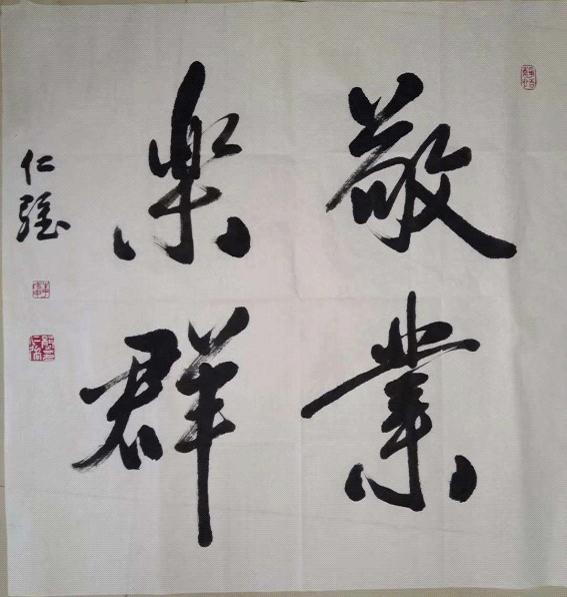 敬業
樂群
仁強